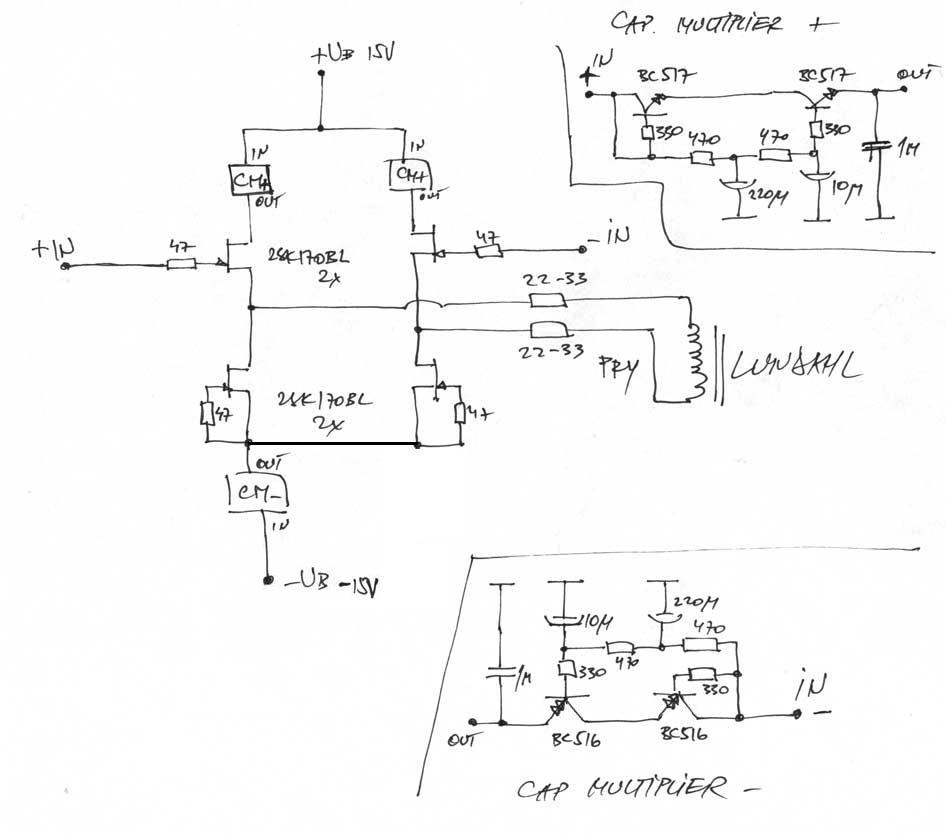 CAP. MULTIPLIER +
+UB 15V
+ IN
BC517
BC517
OUT
330
470
470
330
1M
220M
10M
IN
IN
CM+
CM+
OUT
OUT
+IN
47
2SK170BL
2x
47
-IN
22-33
22-33
PRY
LUNDAHL
47
2SK170BL
2x
47
OUT
CM-
IN
-UB -15V
10M
220M
470
470
1M
330
330
IN
-
OUT
BC516
BC516
CAP MULTIPLIER -